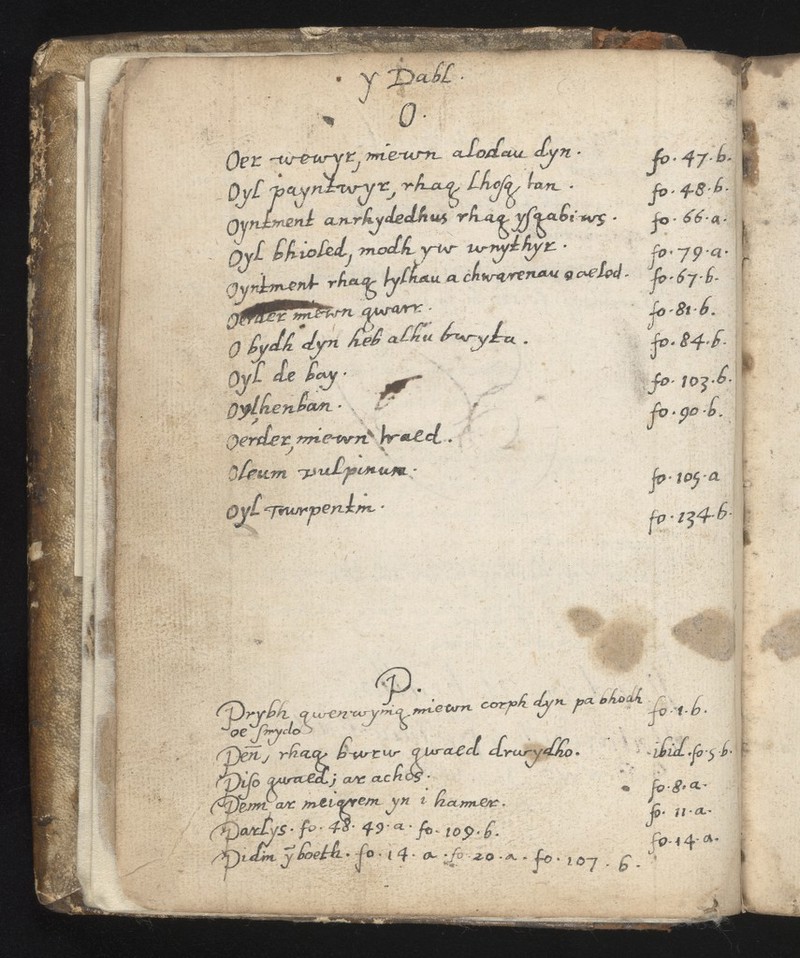 y Dabl.
O.
Oer wewyr, miewn alodau dyn. fo. 47. b.
Oyl payntwyr, rhag lhosg tan. fo. 48. b.
Oyntment anrhydedhus rhag ysgabiws. fo. 66. a.
Oyl bhioled, modh yw wnythyr. fo. 79. a.
Oyntment rhag tylhau a chwarenau o aelod. fo. 67. b.
Oerder miewn gwarr. fo. 81. b.
O bydh dyn heb alhu bwyta. fo. 84. b.
Oyl de bay. fo. 103. b.
Oylhenban. fo. 90. b.
Oerder, miewn traed.
Oleum vulpinum. fo. 105. a
Oyl Turpentin. fo. 134. b.
P.
Prybh gwenwynig miewn corph dyn pa bhodh fo. 1. b.
Pen̄, rhag bwrw gwaed drwydho. ibid. fo. 5. b.
Piso gwaed; ar achos. fo. 8. a.
Penn ar meigrem yn i hanner. fo. 11. a.
Parlys. fo. 48. 49. a. fo. 109. b. fo. 14. a.
Pidin ȳ boeth. fo. 14. a. fo. 20. a. fo. 107. b.